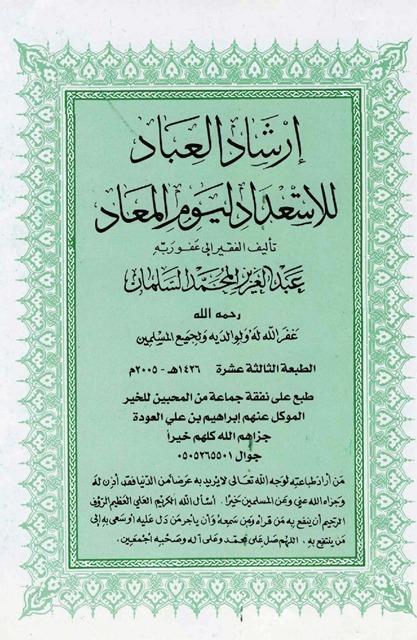 إرشاد العباد
للاستعداد ليوم المعاد
تأليف الفقير إلى عفو ربه
عبد العزيز المحمد السلمان
رحمه الله
غفر الله له ولوالديه ولجميع المسلمين
الطبعة الثالثة عشرة ١٤٢٦هـ - ٢٠٠٥م
طبع على نفقة جماعة من المحبين للخير
الموكل عنهم إبراهيم بن علي العودة
جزاهم الله كلهم خيراً
جوال ٠٥٠٥٢٦٥٥٠١
مَن أراد طباعته لوجه الله تعالى لا يريد به عرضا من الدنيا فقد أذن له
وجزاه الله عني وعن المسلمين خيرًا. أسأل الله الكريم العلي العظيم الرؤف
الرحيم أن ينفع به من قرأه ومن سمعه وأن يأجر من دل عليه أو سعى به إلى
من ينتفع به، اللهم صل على محمد وعلى آله وصحبه أجمعين.